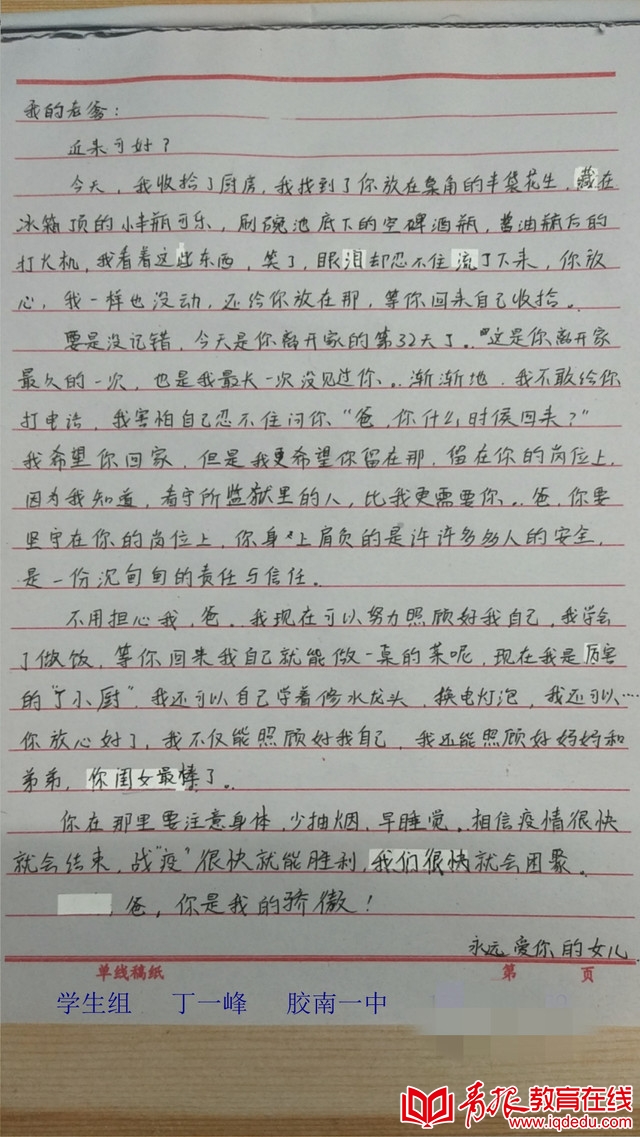 我的老爹：
近来可好？
今天，我收拾了厨房，我找到了你放在桌角的半袋花生，藏在
冰箱顶的小半瓶可乐，刷碗池底下的空啤酒瓶，酱油瓶后的
打火机，我看着这些东西，笑了，眼泪却忍不住流了下来，你放
心，我一样也没动，还给你放在那，等你回来自己收拾。
要是没记错，今天是你离开家的第32天了。这是你离开家
最久的一次，也是我最长一次没见过你。渐渐地，我不敢给你
打电话，我害怕自己忍不住问你“爸，你什么时候回来？”
我希望你回家，但是我更希望你留在那，留在你的岗位上，
因为我知道，看守所监狱里的人，比我更需要你。爸，你要
坚守在你的岗位上，你身上肩负的是许许多多人的安全，
是一份沉甸甸的责任与信任。
不用担心我，爸。我现在可以努力照顾好我自己，我学会
了做饭，等你回来我自己就能做一桌的菜呢，现在我是厉害
的“丁小厨”，我还可以自己学着修水龙头，换电灯泡，我还可以……
你放心好了，我不仅能照顾好我自己，我还能照顾好妈妈和
弟弟，你闺女最棒了。
你在那里要注意身体，少抽烟，早睡觉。相信疫情很快
就会结束，战“疫”很快就能胜利，我们很快就会团聚。
，爸，你是我的骄傲！
永远爱你的女儿
单线稿纸 第 页
学生组 丁一峰 胶南一中
青报教育在线
www.iqdedu.com